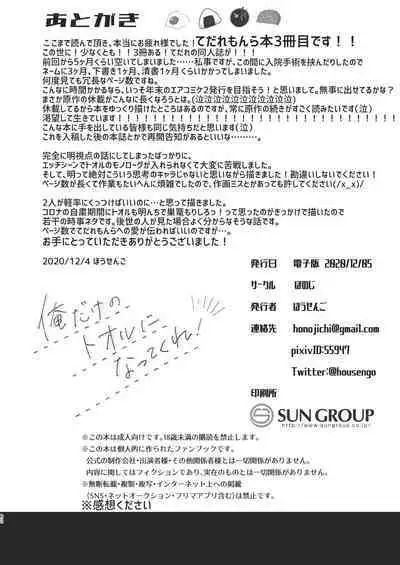 あとがき
ここまで読んで頂き、本当にお疲れ様でした！てだれもんら本3冊目です！！
この世に！少なくとも！！3冊ある！てだれの同人誌が！！！！
前回から5ヶ月くらい空いてしまいました……私事ですが、この間に入院手術を挟んだりしたので
ネームに3ヶ月、下書き1ヶ月、清書1ヶ月くらいかかってしまいました。
何度見ても冗長なページ数ですね。
こんなに時間かかるなら、いっそ年末のエアコミケ2発行を目指そう！と思いまして。無事に出せてるかな？
まさか原作の休載がこんなに長くなろうとは。(泣泣泣泣泣泣泣泣泣泣)
休載してるから本をゆっくり描けたところはあるのですが、常に原作の続きがすごく読みたいです(泣)
渇望して生きています！！！！！！！！！！！！！！！！！！！！！！！！！！！！
こんな本に手を出している皆様も同じ気持ちだと思います(泣)
これを入稿した後の本誌とかで再開告知があるといいな………。
完全に明視点の話にしてしまったばっかりに、
エッチシーンでトオルのモノローグが入れられなくて大変に苦戦しました。
そして、明って絶対こういう思考のキャラじゃないと思いながら描きました！勘違いしないでください！
ページ数が長くて作業もたいへんに煩雑でしたので、作画ミスとかあっても許してください(/x_x)/
2人が軽率にくっつけばいいのに…と思って描きました。
コロナの自粛期間にトオルも明んちで巣篭もりしろっ！って思ったのがきっかけで描いたので
若干の時事ネタです。後世の人が見た場合よく分からなそうな話です。
ページ数でてだれもんらへの愛が伝わればいいのですが…。
お手にとっていただきありがとうございました！
2020/12/4 ほうせんご
俺だけの
トオルに
なってくれ！
発行日 電子版 2020/12/05
サークル ほのじ
発行者 ほうせんご
連絡先 honojichi@gmail.com
pixivID:55947
Twitter:@housengo
印刷所
SUN GROUP
http://www.sungroup.co.jp/
※この本は成人向けです。18歳未満の購読を禁止します。
※この本は個人的に作られたファンブックです。
公式の制作会社・出演者様・その他関係者様とは一切関係がありません。
内容に関してはフィクションであり、実在のものとは一切関係がありません。
※無断転載・複製・複写・インターネット上への掲載
(SNS・ネットオークション・フリマアプリ含む)は禁止です。
※感想ください